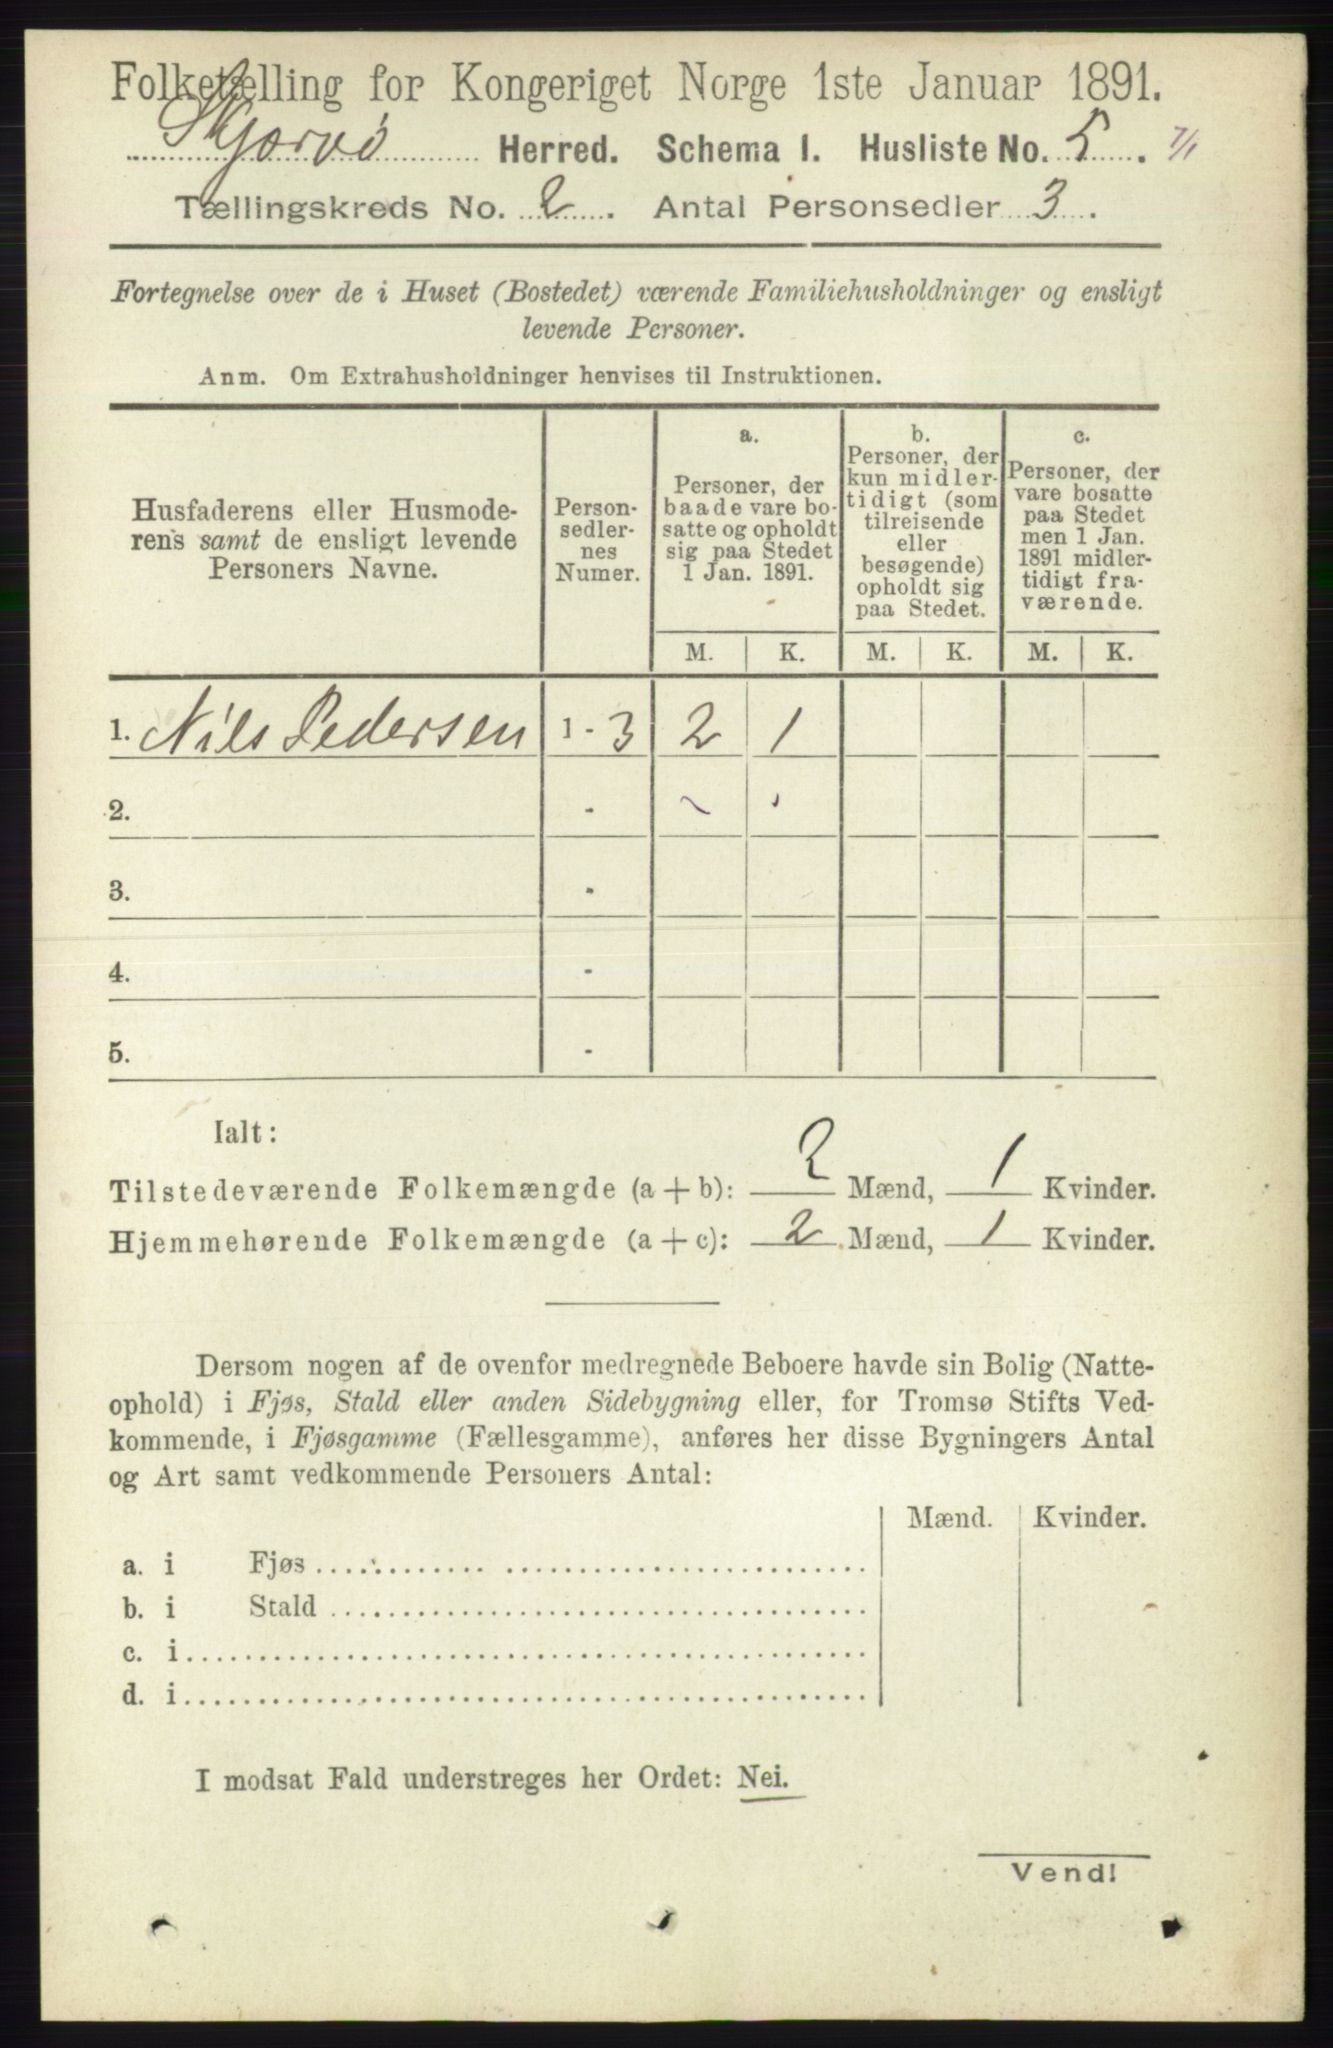 Folketælling for Kongeriget Norge 1ste Januar 1891.
Skjærvø Herred. Schema I. Husliste No. 5. 7/1
Tællingskreds No. 2. Antal Personsedler 3.
Fortegnelse over de i Huset (Bostedet) værende Familiehusholdninger og ensligt
levende Personer.
Anm. Om Extrahusholdninger henvises til Instruktionen.
Husfaderens eller Husmode-
rens samt de ensligt levende
Personers Navne.
Person-
sedler-
nes
Numer.
a.
Personer, der
baade vare bo-
satte og opholdt
sig paa Stedet
1 Jan. 1891.
b.
Personer, der
kun midler-
tidigt (som
tilreisende
eller
besøgende)
opholdt sig
paa Stedet.
c.
Personer, der
vare bosatte
paa Stedet
men 1 Jan.
1891 midler-
tidigt fra-
værende.
M. K. M. K. M. K.
1. Nils Pedersen 1 - 3 2 1
2. -
3. -
4. -
5. -
Ialt:
Tilstedeværende Folkemængde (a + b): 2 Mænd, 1 Kvinder.
Hjemmehørende Folkemængde (a + c): 2 Mænd, 1 Kvinder.
Dersom nogen af de ovenfor medregnede Beboere havde sin Bolig (Natte-
ophold) i Fjøs, Stald eller anden Sidebygning eller, for Tromsø Stifts Ved-
kommende, i Fjøsgamme (Fællesgamme), anføres her disse Bygningers Antal
og Art samt vedkommende Personers Antal:
Mænd. Kvinder.
a. i Fjøs
b. i Stald
c. i
d. i
I modsat Fald understreges her Ordet: Nei.
Vend!